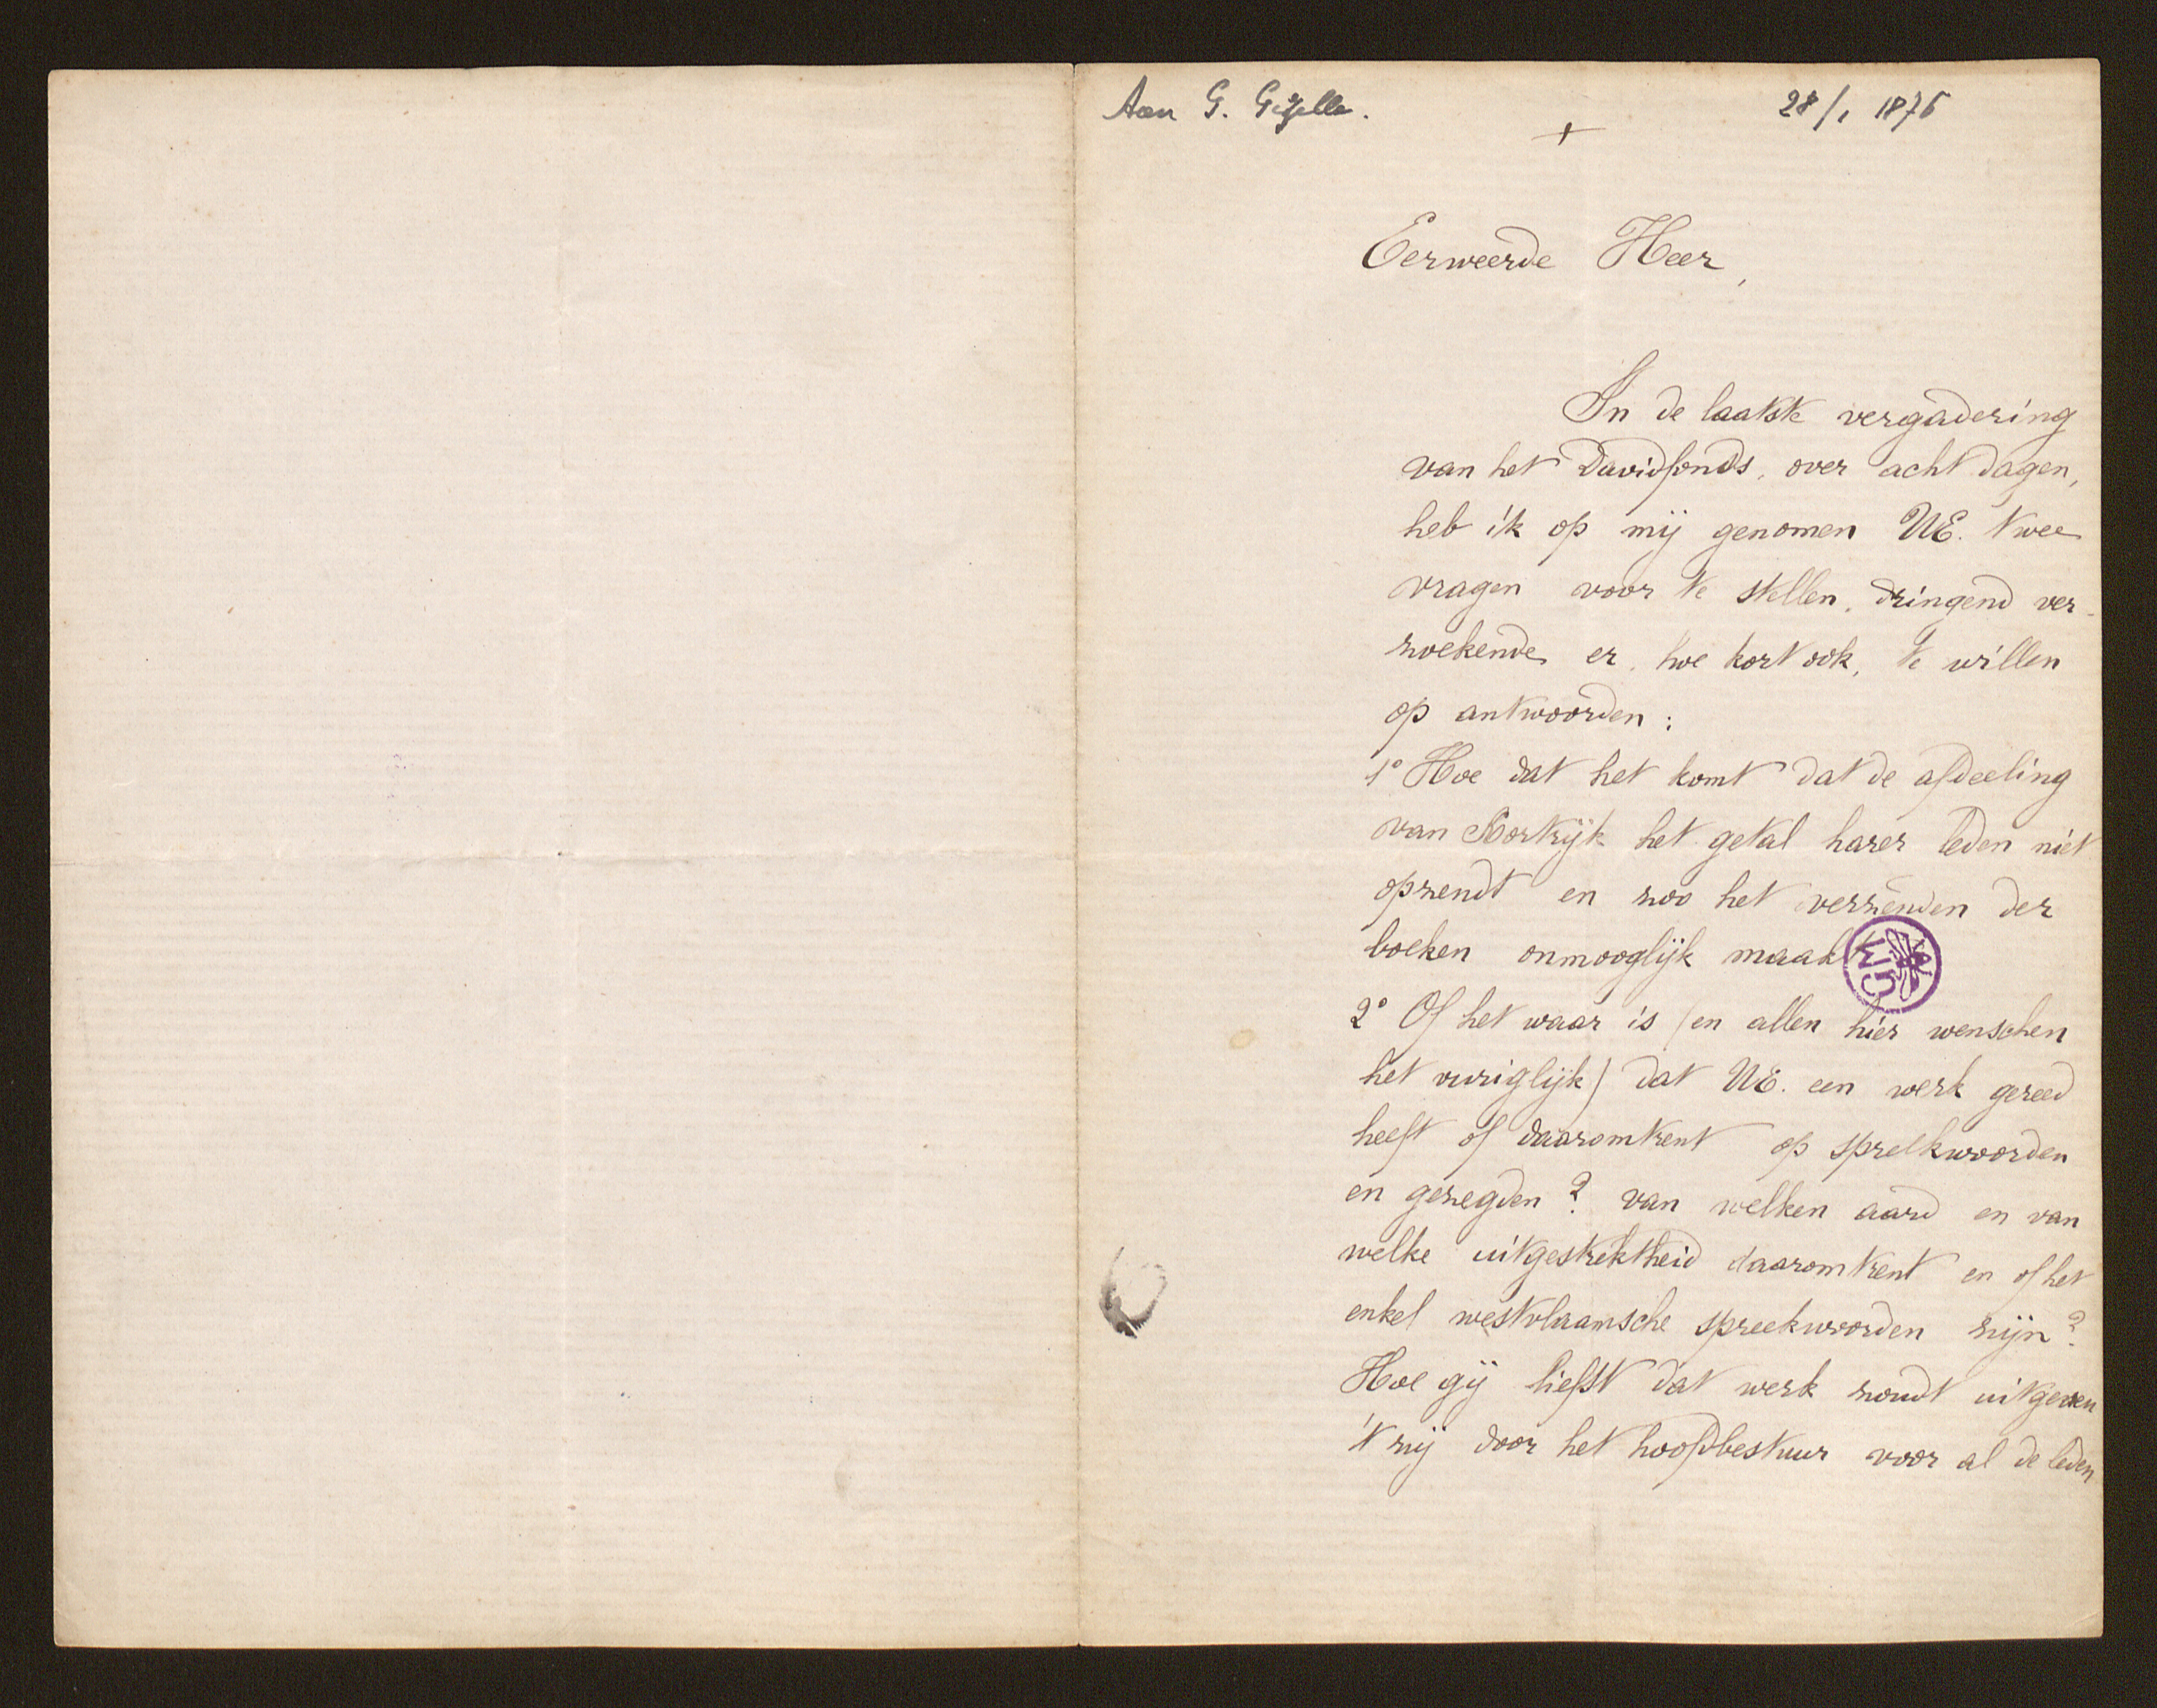 Aan G. Gezelle. 28/1 1876
+
Eerweerde Heer,
In de laatste vergadering
van het Davidfonds, over acht dagen,
heb ik op mij genomen UE. twee
vragen voor te stellen, dringend ver-
zoekende er, hoe kort ook, te willen
op antwoorden:
1° Hoe dat het komt dat de afdeeling
van Kortrijk het getal harer leden niet
opzendt en zoo het verzenden der
boeken onmooglijk maakt
GM
2° Of het waar is (en allen hier wenschen
het vuriglijk) dat UE. een werk gereed
heeft of daaromtrent op spreekwoorden
en gezegden? van welken aard en van
welke uitgestrektheid daaromtrent en of het
enkel westvlaamsche spreekwoorden zijn?
Hoe gij liefst dat werk zoudt uitgeven
't zij door het hoofdbestuur voor al de leden